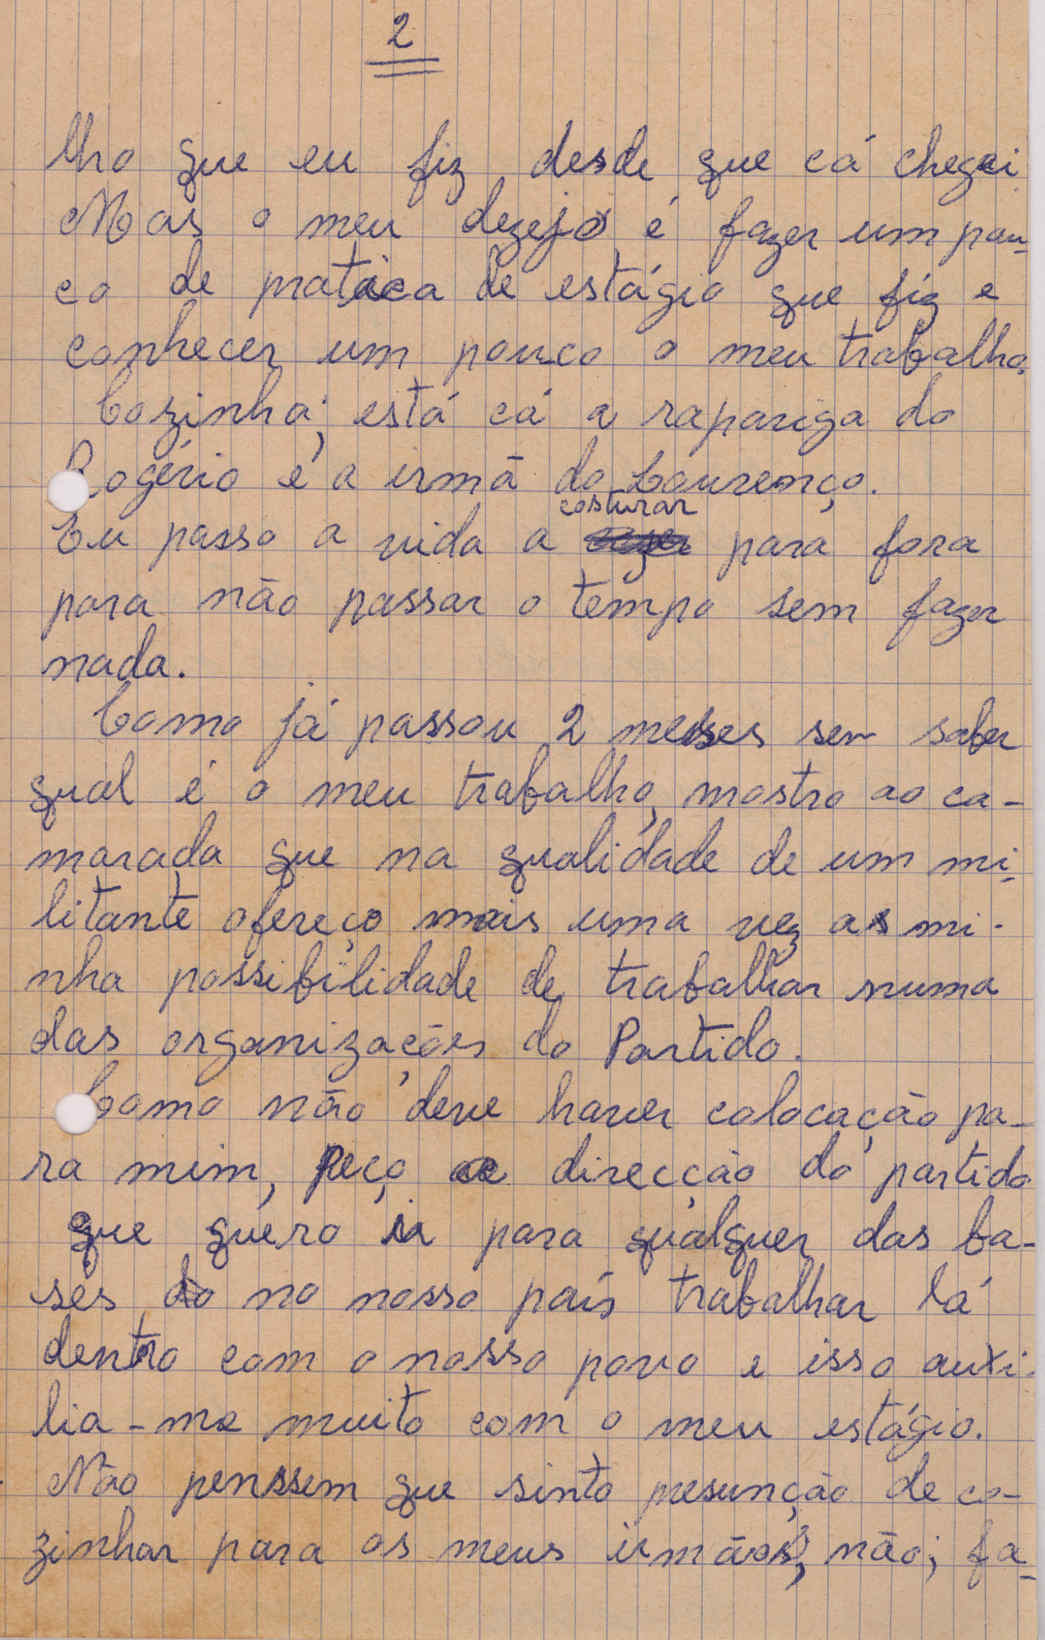 2
lho que eu fiz desde que cá cheguei
Mas o meu dezejo é fazer um pou-
co de pratica de estágio que fiz e
conhecer um pouco o meu trabalho.
Cozinha; está cá a rapariga do
Rogério e a irmã do Lourenço.
costurar
Eu passo a vida a para fora
para não passar o tempo sem fazer
nada.
Como já passou 2 meses sem saber
qual é o meu trabalho, mostro ao ca-
marada que na qualidade de um mi-
litante ofereço mais uma vez as mi-
nha possibilidade de trabalhar numa
das organizações do Partido.
Como não deve haver colocação pa-
ra mim, peço a direcção do partido
que quero ir para qualquer das ba-
ses do no nosso país trabalhar lá
dentro com o nosso povo e isso auxi-
lia-me muito com o meu estágio.
Não penssem que sinto presunção de co-
zinhar para os meus irmãos, não; fa-